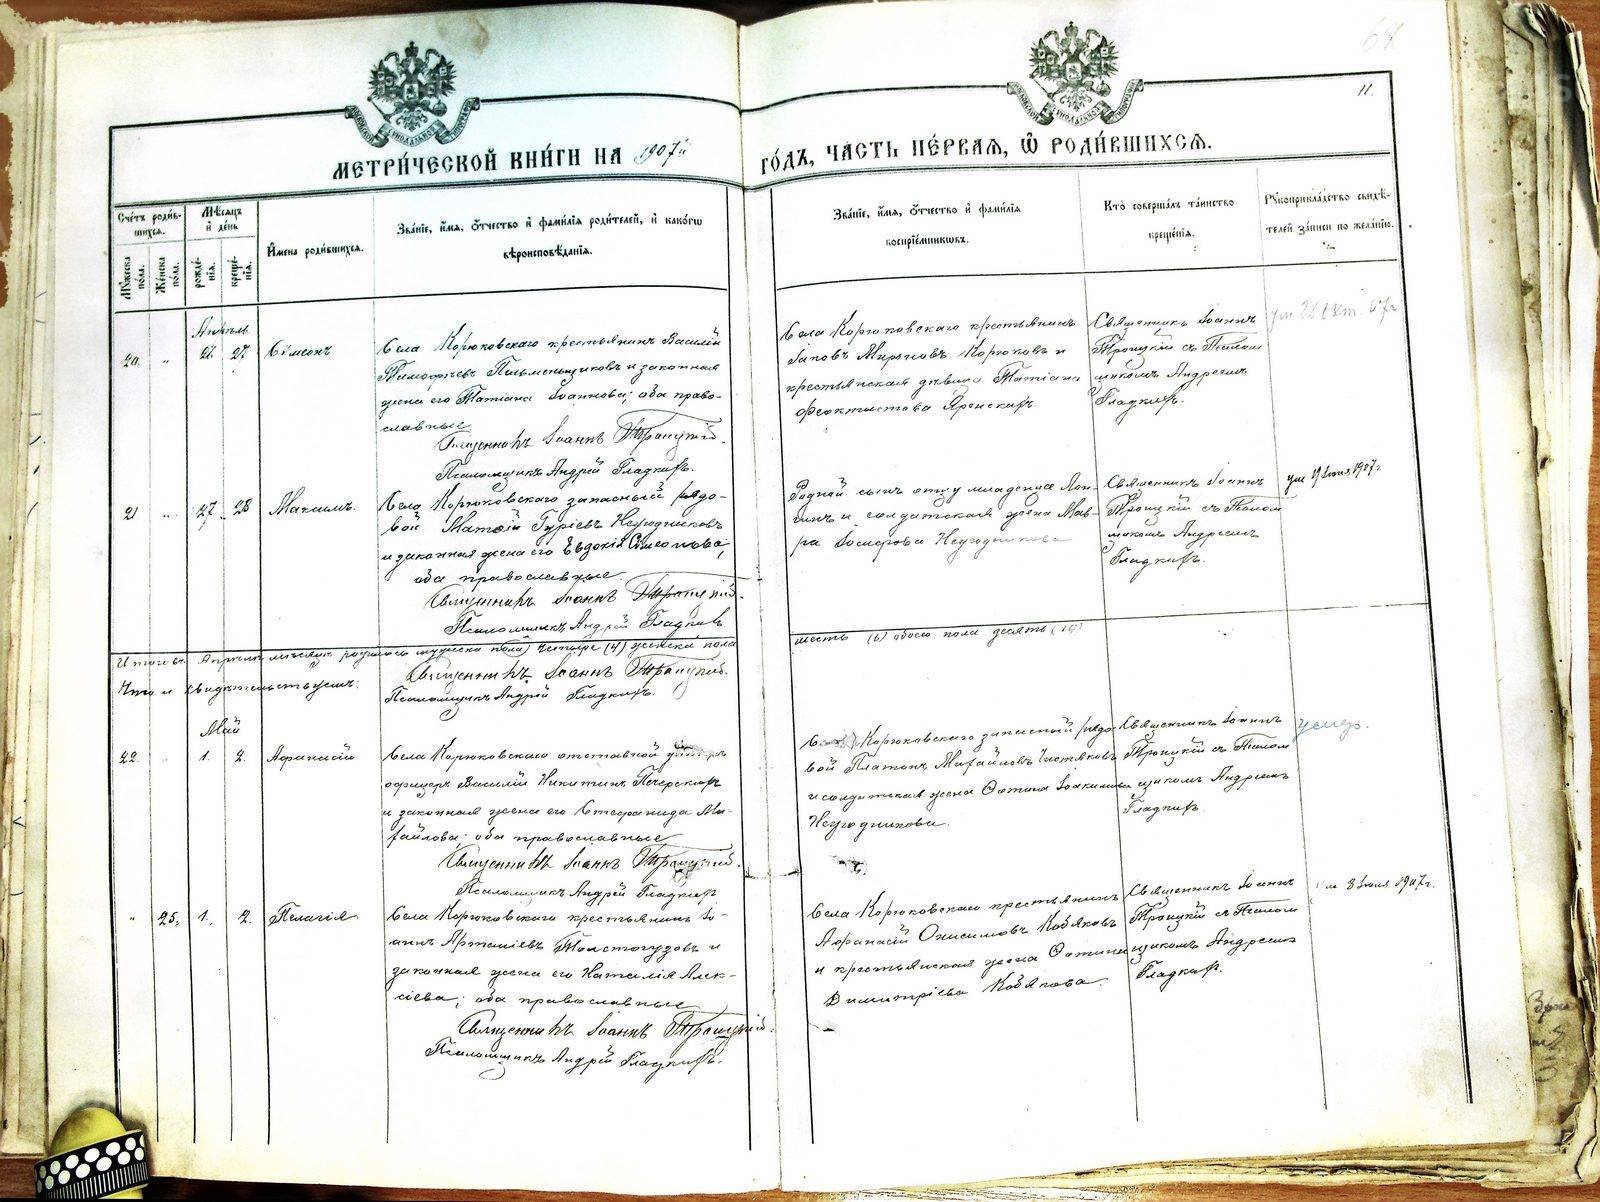 68
11.
МЕТРИ́ЧЕСКОЙ КНИ́ГИ НА 1907й ГО́ДЪ, ЧА́СТЬ ПЕ́РВАЯ, Ѽ РОДИ́ВШИХСЯ.
Сче́тъ роди́в-
шихся.
Му́жеска по́ла.
Же́нска по́ла.
Мѣ́сяцъ
и҆ де́нь
рожде́-
нїя.
креще́-
нїя.
И҆мена роди́вшихся.
Зва́нїе, и҆́мя, ѻ҆́тчество и҆ фами́лїя роди́телей, и҆ како́гѡ
вѣроисповѣ́данїя.
Зва́нїе, и҆́мя, ѻ҆́тчество и҆ фами́лїя
воспрїе́мникѡвъ.
Кто̀ соверша́лъ та́инство
креще́нїя.
Рꙋкоприкла́дство свидѣ́-
телей за́писи по жела́нїю.
Апрѣль
20. " 26. 27. Сѵмеонъ
Села Корюковскаго крестьянинъ Василій
Тимофѣевъ Пильменьщиковъ и законная
жена его Татіана Іоаннова; оба право-
славные
Священникъ Іоаннъ Троицкій.
Псаломщикъ Андрей Гладкихъ.
Села Корюковскаго крестьянинъ
Іаковъ Корюковъ и
крестьянская дѣвица Татіана
Ѳеоктистова Яренскихъ
Священникъ Іоаннъ
Троицкій съ Псалом
щикомъ Андреемъ
Гладкихъ.
ум 22 07г
21 " 27. 28 Максимъ.
Села Корюковскаго запасный рядо-
вой Матѳій Гуріевъ Неугодниковъ
и законная жена его Евдокія Симеонова,
оба православные.
Священникъ Іоаннъ Троицкій.
Псаломщикъ Андрей Гладкихъ
Родной сынъ отцу младенца Лон-
гинъ и солдатская жена Мав-
ра Неугодникова
Священникъ Іоаннъ
Троицкій съ Псалом
щикомъ Андреемъ
Гладкихъ.
ум 19 1907г
Итого въ Апрѣлѣ мѣсяцѣ родилось мужска пола четыре (4) женска пола шесть (6) обоего пола десять (10)
Что и свидѣтельствуемъ:
Священникъ Іоаннъ Троицкій.
Псаломщикъ Андрей Гладкихъ.
Май
22. 1. 2. Аѳанасій
Села Корюковскаго отставной унтеръ
офицеръ Василій Никитинъ Печерскихъ
и законная жена его Стефанида Ми-
хайлова; оба православные
Священникъ Іоаннъ Троицкій
Псаломщикъ Андрей Гладкихъ
Корюковскаго запасный рядо-
вой Платонъ Михайловъ Чистяковъ
и солдатская жена Іоакимова
Неугодникова.
Священникъ Іоаннъ
Троицкій съ Псалом
щикомъ Андреемъ
Гладкихъ.
умер.
" 25. 1. 2. Пелагія
Села Корюковскаго крестьянинъ Іо-
аннъ Артеміевъ Толстогузовъ и
законная жена его Наталія Алек-
сіева; оба православные
Священникъ Іоаннъ Троицкій.
Псаломщикъ Андрей Гладкихъ.
Села Корюковскаго крестьянинъ
Аѳанасій Онисимовъ Кобяковъ
и крестьянская жена
Димитріева Кобякова.
Священникъ Іоаннъ
Троицкій съ Псалом
щикомъ Андреемъ
Гладкихъ.
ум 8 1907г.